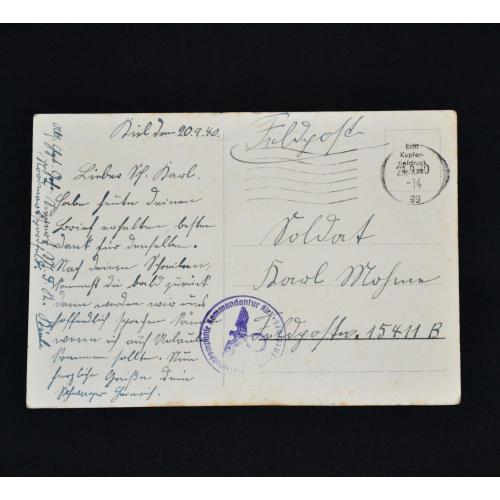 Kiel den 20.9.40.
Lieber Sch. Karl.
Habe heute deinen
Brief erhalten besten
Dank für denselben.
Nach deinem Schreiben,
kommst du bald zurück
dann werden wir uns
hoffentlich sprechen
wenn ich auf Urlaub
kommen sollte. Nun
herzliche Grüße dein
Schwager Heinrich.
Feldpost
Echt
Kupfer-
tiefdruck
-14
Soldat
Karl Mohme
Feldpostnr. 15411 B
Kommandantur Kiel